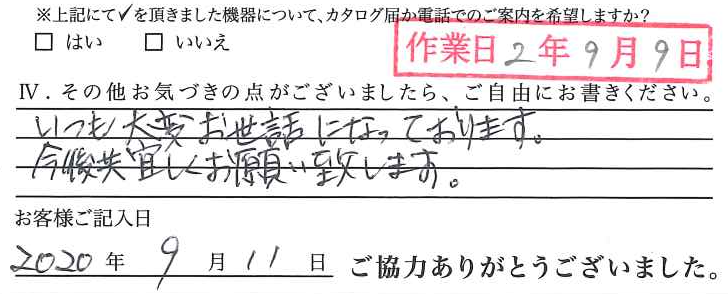 ※上記にて✓を頂きました機器について、カタログ届か電話でのご案内を希望しますか?
□ はい □ いいえ
作業日2年9月9日
Ⅳ.その他お気づきの点がございましたら、ご自由にお書きください。
いつも大変お世話になっております。
今後共宜しくお願い致します。
お客様ご記入日
2020年9月11日 ご協力ありがとうございました。